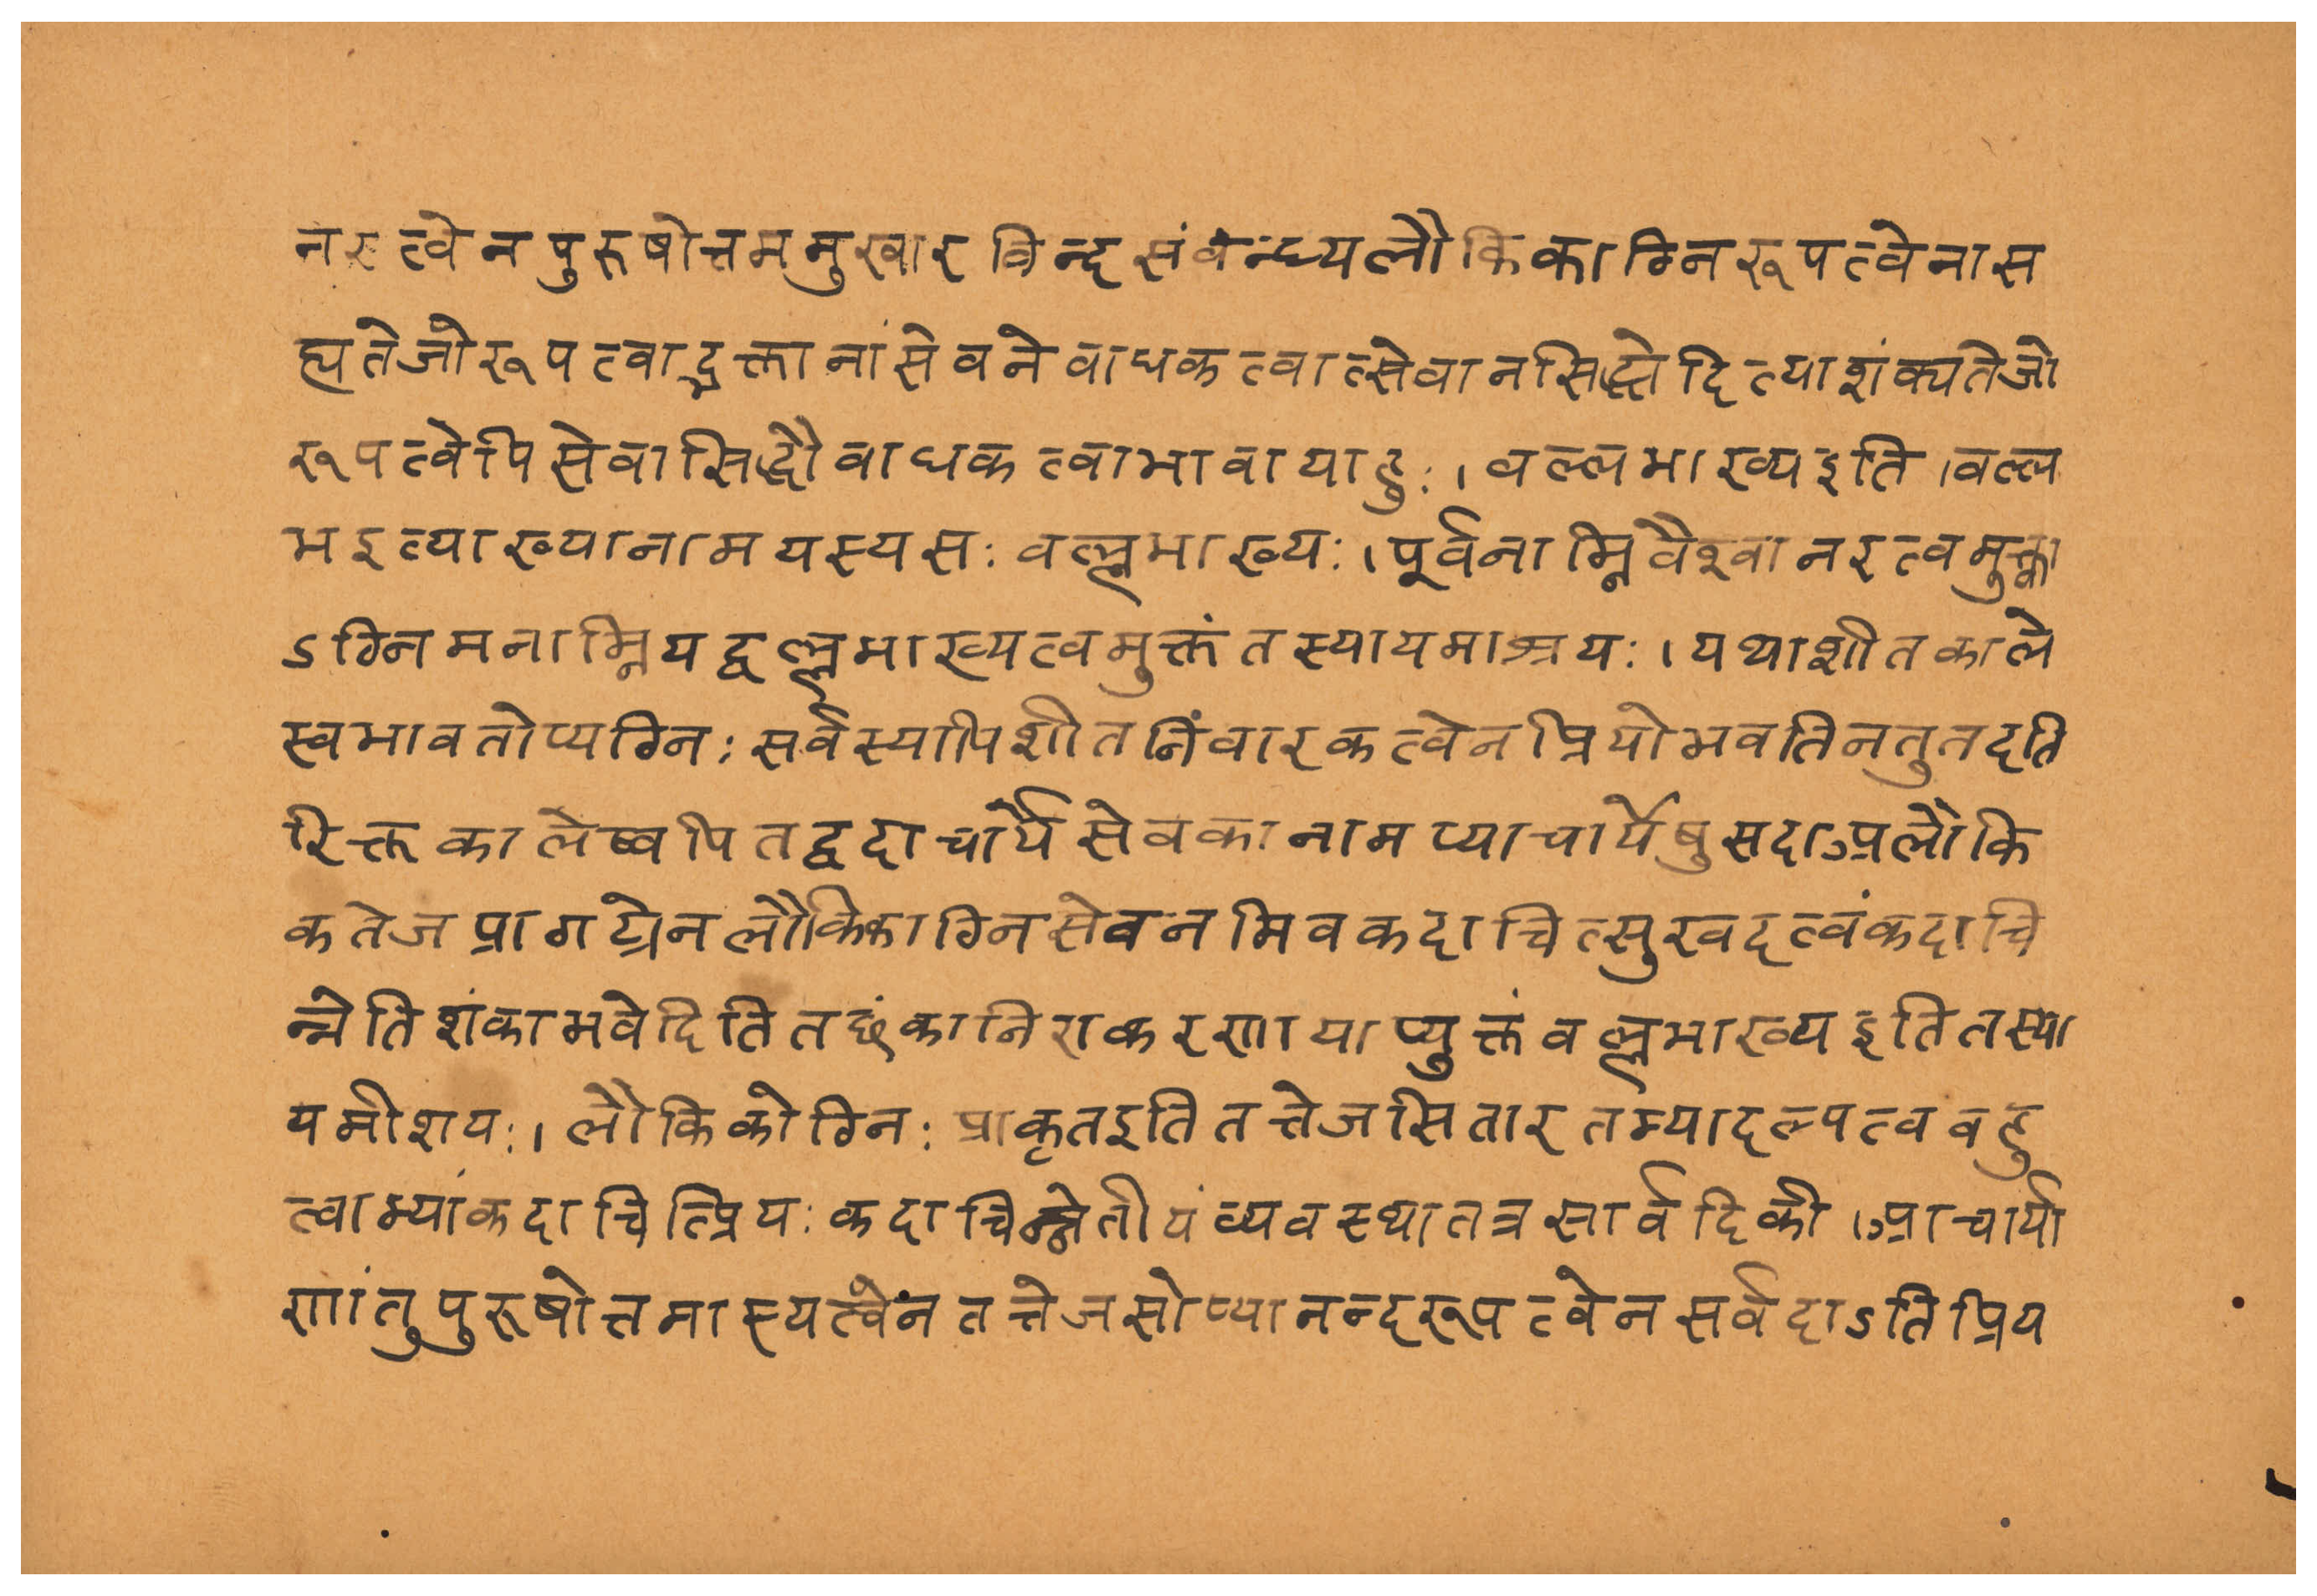 नरत्वेनपुरुषोत्तममुखारविन्दसंवन्ध्यलौकिकाग्निरूपत्वेनास
ह्यतेजोरूपत्वाद्भक्तानांसेवनेवाधकत्वात्सेवानसिद्धेदित्याशंक्यतेजो
रूपत्वेपिसेवासिद्धौवाधकत्वाभावायाहुः।वल्लभाख्यइति।वल्ल
भइत्याख्यानामयस्यसःवल्लभाख्यः।पूर्वनाम्निवैश्वानरत्वमुक्त्वा
ऽग्निमनाम्नियद्वल्लभाख्यत्वमुक्तंतस्यायमाश्रयः।यथाशीतकाले
स्वभावतोप्यग्निःसर्वस्यापिशीतनिंवारकत्वेनप्रियोभवतिनतुतदति
रिक्तकालेष्वपितद्वदाचार्यसेवकानामप्याचार्येषुसदाअलौकि
कतेजप्रागट्येनलौकिकाग्निसेवनमिवकदाचित्सुखदत्वंकदाचि
न्नेतिशंकाभवेदितितछंकानिराकरणायाप्युक्तंवल्लभाख्यइतितस्या
यमाशयः।लौकिकोग्निःप्राकृतइतितत्तेजसितारतम्यादल्पत्ववहु
त्वाभ्यांकदाचित्प्रियःकदाचिन्नेतीयंव्यवस्थातत्रसार्वदिकी।आचार्या
णांतुपुरूषोत्तमास्यत्वेनतत्तेजसोप्यानन्दरूपत्वेनसर्वदाऽतिप्रिय